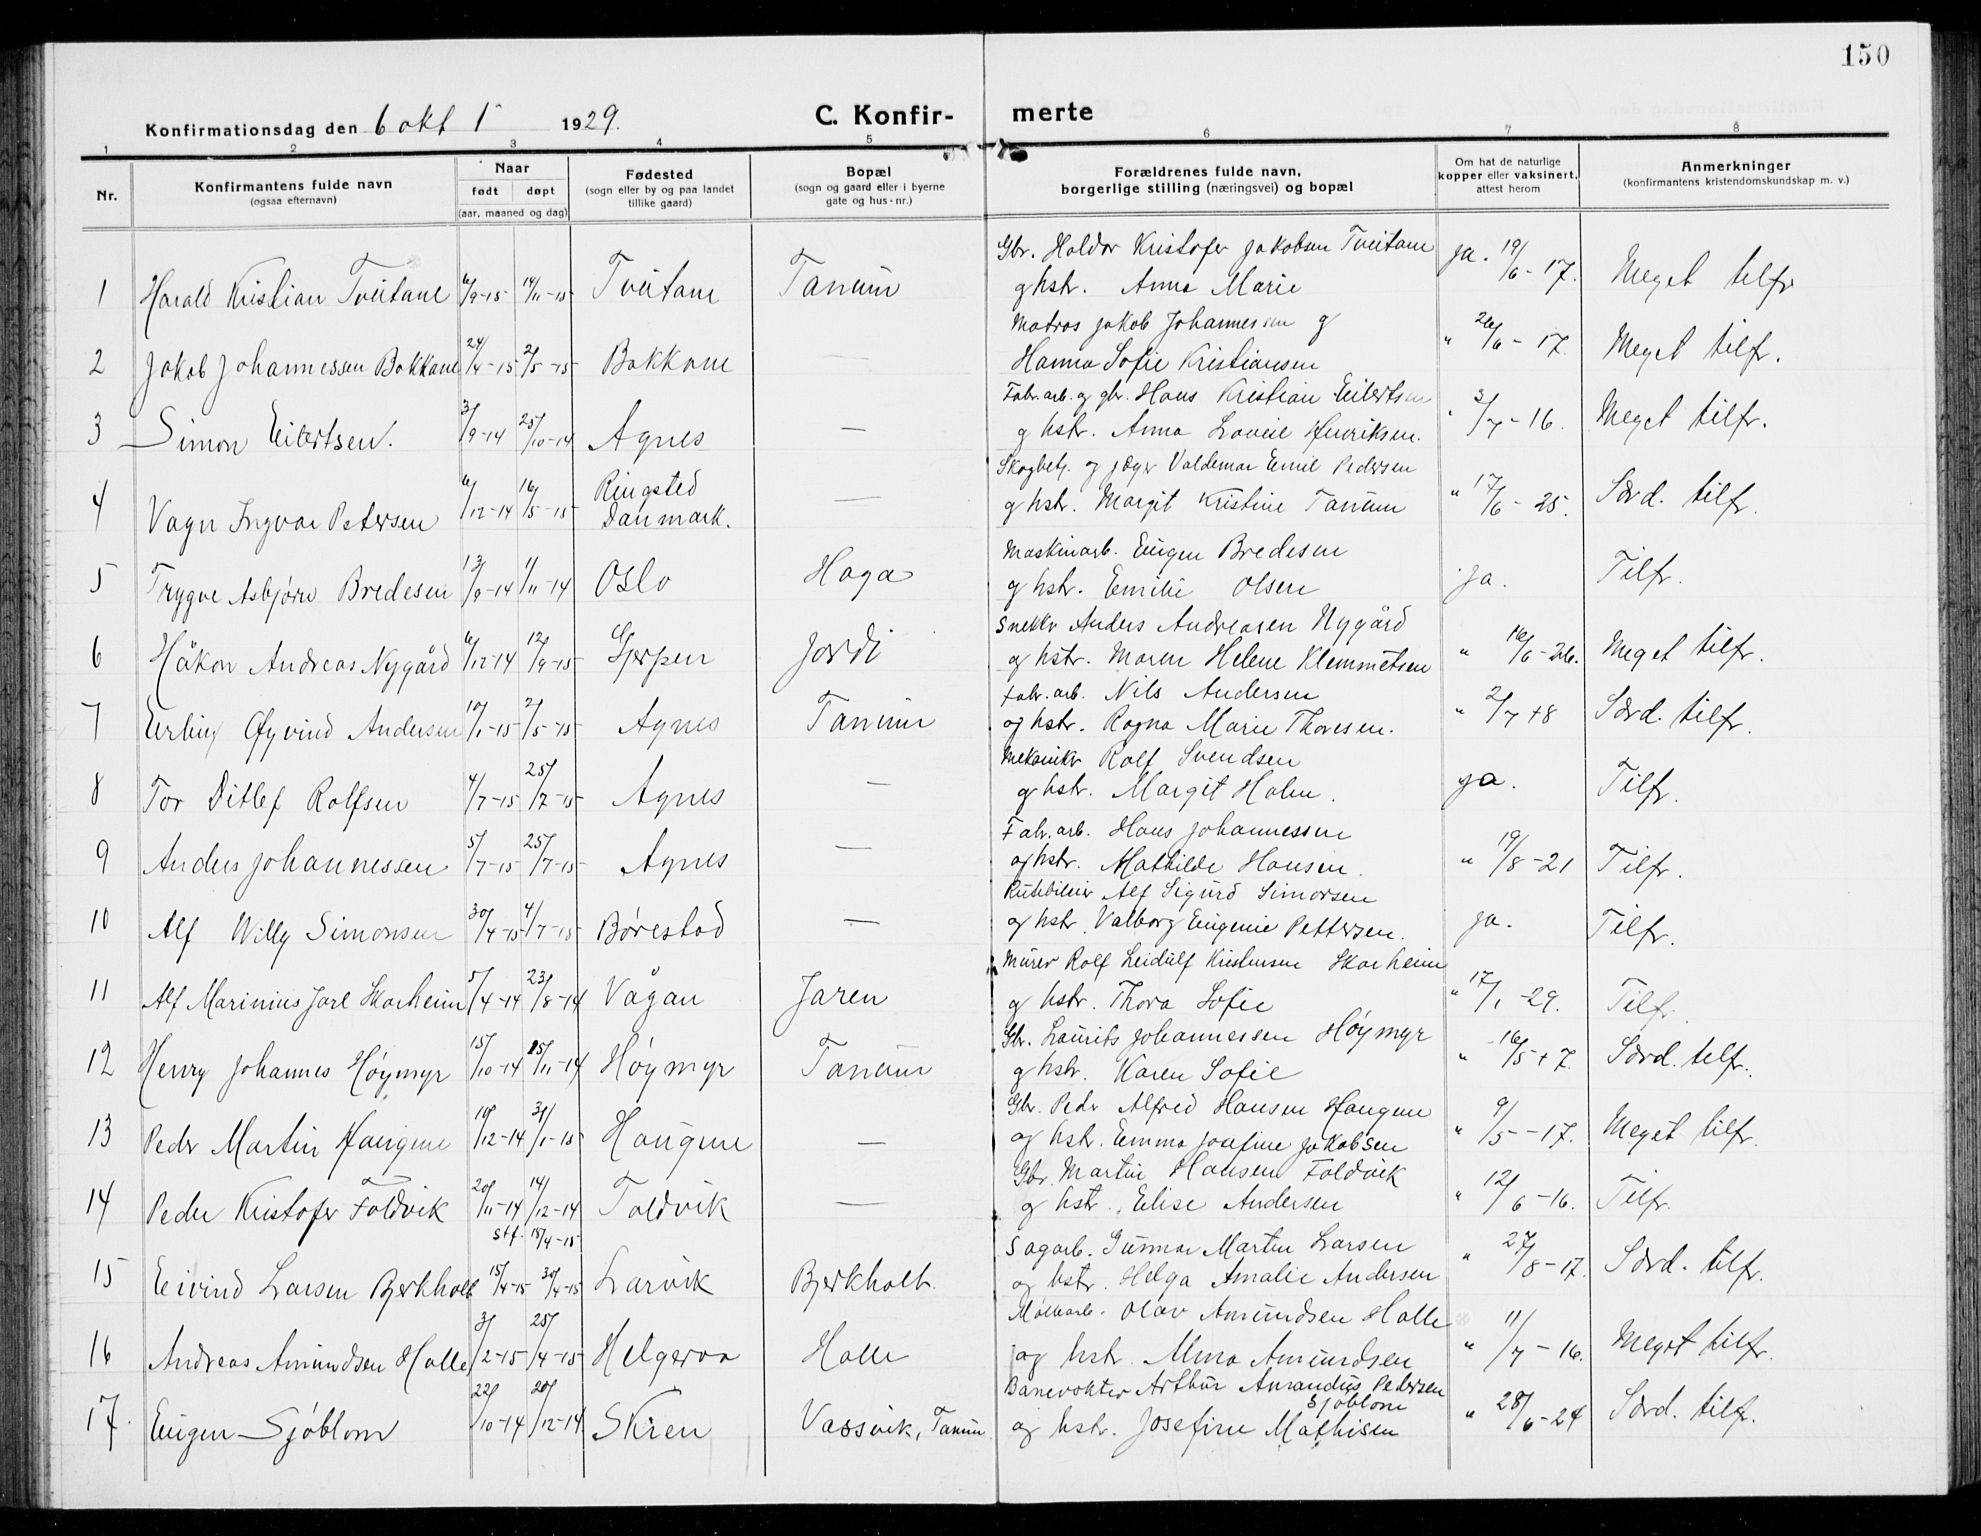 150
Konfirmationsdag den 6 okt 1929.
C. Konfir- merte
1 2 3 4 5 6 7 8
Nr.
Konfirmantens fulde navn
(ogsaa efternavn)
Naar
født døpt
(aar, maaned og dag)
Fødested
(sogn eller by og paa landet
tillike gaard)
Bopæl
(sogn og gaard eller i byerne
gate og hus-nr.)
Forældrenes fulde navn,
borgerlige stilling (næringsvei) og bopæl
Om hat de naturlige
kopper eller vaksinert,
attest herom
Anmerkninger
(konfirmantens kristendomskundskap m. v.)
Gbr. Haldor Kristofer Jakobsen Tveitane
1 Harald Kristian Tveitane 6/9-15 14/11-15 Tveitane Tanum og hstr. Anna Marie ja. 19/6-17. Meget tilfr
Matros Jakob Johannessen og
2 Jakob Johannessen Bakkane 24/4-15 2/5-15 Bakkane — Hanna Sofie Kristiansen " 26/6-17. Meget tilfr.
Fabr.arb. og gbr. Hans Kristian Eilertsen
3 Simon Eilertsen. 3/9-14 25/10-14 Agnes — og hstr. Anna Lovise Henriksen. " 3/7-16. Meget tilfr.
Skogbetj. og jæger Valdemar Emil Pedersen
4 Vagn Ingvar Petersen 6/12-14 16/5-15 Ringsted — og hstr. Margit Kristine Tanum " 17/6-25. Særd. tilfr.
Danmark.
Maskinarb. Eugen Bredesen
5 Trygve Asbjørn Bredesen 13/9-14 1/11-14 Oslo Haga og hstr. Emilie Olsen ja. Tilfr.
Snekker Anders Andreasen Nygård
6 Håkon Andreas Nygård 6/12-14 12/9-15 Gjerpen Jordi og hstr. Maren Helene Klemmetsen " 16/6-26. Meget tilfr.
Fabr.arb. Nils Andersen
7 Erling Øyvind Andersen 10/1-15 2/5-15 Agnes Tanum og hstr. Ragna Marie Thoresen. " 2/7+8 Særd. tilfr.
Mekaniker Rolf Svendsen
8 Tor Ditlef Rolfsen 4/7-15 25/7-15 Agnes — og hstr. Margit Holm. ja. Tilfr.
Fabr.arb. Hans Johannessen
9 Anders Johannessen 5/7-15 25/7-15 Agnes — og hstr. Mathilde Hansen. " 19/8-21 Tilfr.
Rutebileier Alf Sigurd Simonsen
10 Alf Willy Simonsen 30/4-15 4/7-15 Børestad — og hstr. Valborg Eugenie Pettersen. ja. Tilfr.
Murer Rolf Leidulf Kristensen Skarheim
11 Alf Marinius Jarl Skarheim 5/4-14 23/8-14 Vågan Jaren og hstr. Thora Sofie " 17/1-29. Tilfr.
Gbr. Laurits Johannessen Höymyr
12 Henry Johannes Höymyr 15/10-14 15/11-14 Höymyr Tanum og hstr. Karen Sofie " 16/5+7. Særd. tilfr.
Gbr. Peder Alfred Hansen Haugene
13 Peder Martin Haugene 10/12-14 31/1-15 Haugene — og hstr. Emma Josefine Jakobsen " 9/5-17. Meget tilfr.
Gbr. Martin Hansen Foldvik
14 Peder Kristofer Foldvik 20/11-14 14/12-14 Foldvik — og hstr. Elise Andersen " 12/6-16. Tilfr.
stf. 18/4-15
Sagarb. Gunnar Martin Larsen
15 Eivind Larsen Bjerkholt 15/4-15 30/4-15 Larvik Bjerkholt. og hstr. Helga Amalie Andersen " 27/8-17. Særd. tilfr.
Møllearb. Olav Amundsen Halle
16 Andreas Amundsen Halle 3/2-15 25/4-15 Helgeroa Halle og hstr. Alma Amundsen " 11/7-16. Meget tilfr.
Banevokter Arthur Amandus Pedersen
Sjöblom
17. Eugen Sjöblom 22/10-14 20/12-14 Skien Vassvik, Tanum og hstr. Josefine Mathisen " 28/6-24 Særd. tilfr.